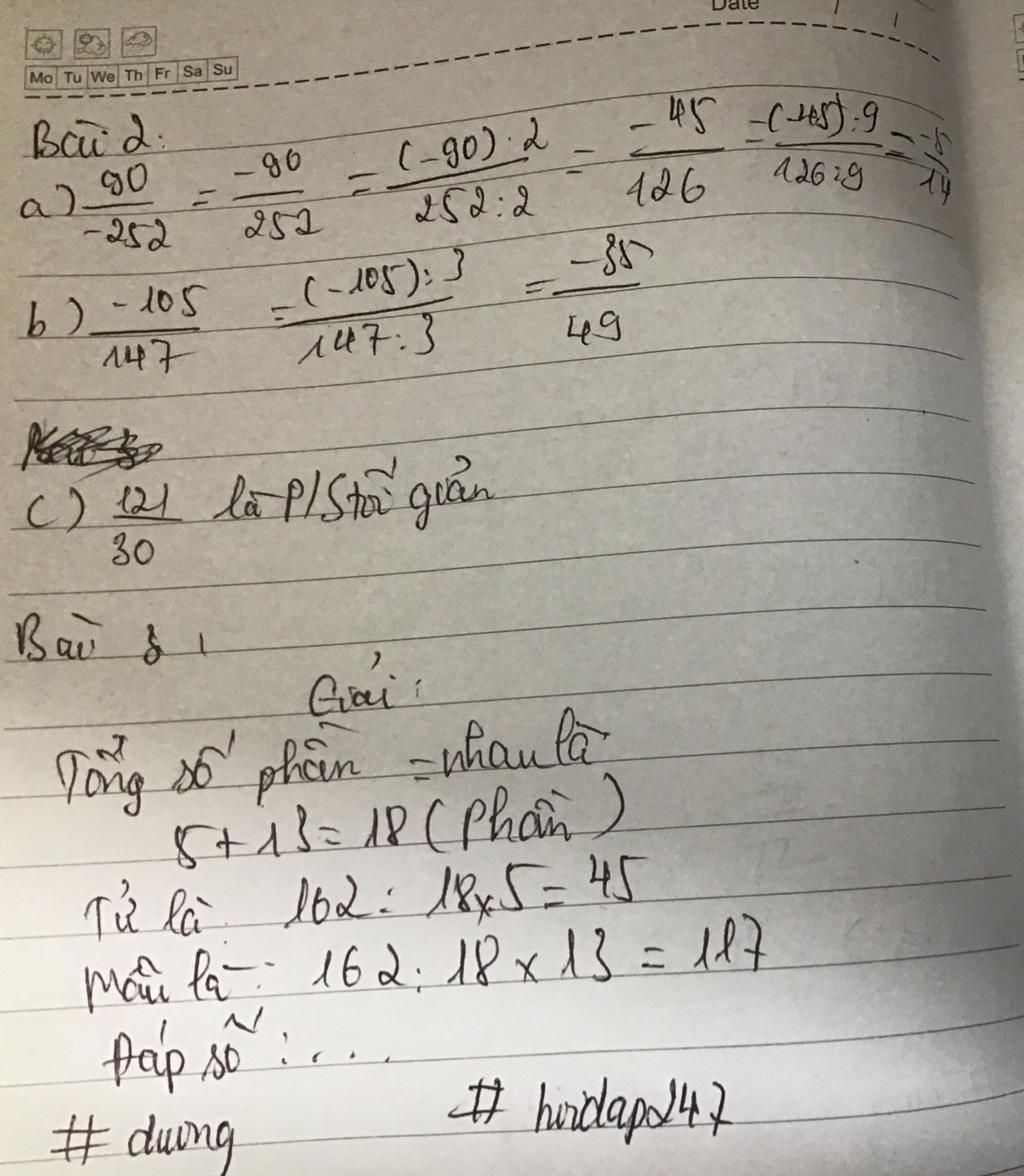 Date / /
Mo Tu We Th Fr Sa Su
Bài 2:
a) 90/-252 = -90/252 = (-90):2/252:2 = -45/126 = (-45):9/126:9 = -5/14
b) -105/147 = (-105):3/147:3 = -35/49
c) 121/30 là P/S tối giản
Bài 3
Giải:
Tổng số phần = nhau là
5 + 13 = 18 (phần)
Tử là 162 : 18 x 5 = 45
Mẫu là: 162 : 18 x 13 = 117
Đáp số : ....
# duong # hoidap247